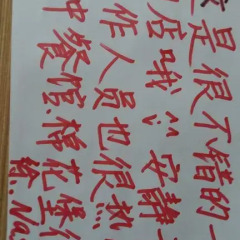 是很不错的一
店哦 安静
作人员也很热
中餐馆.棉花堡
给.Na